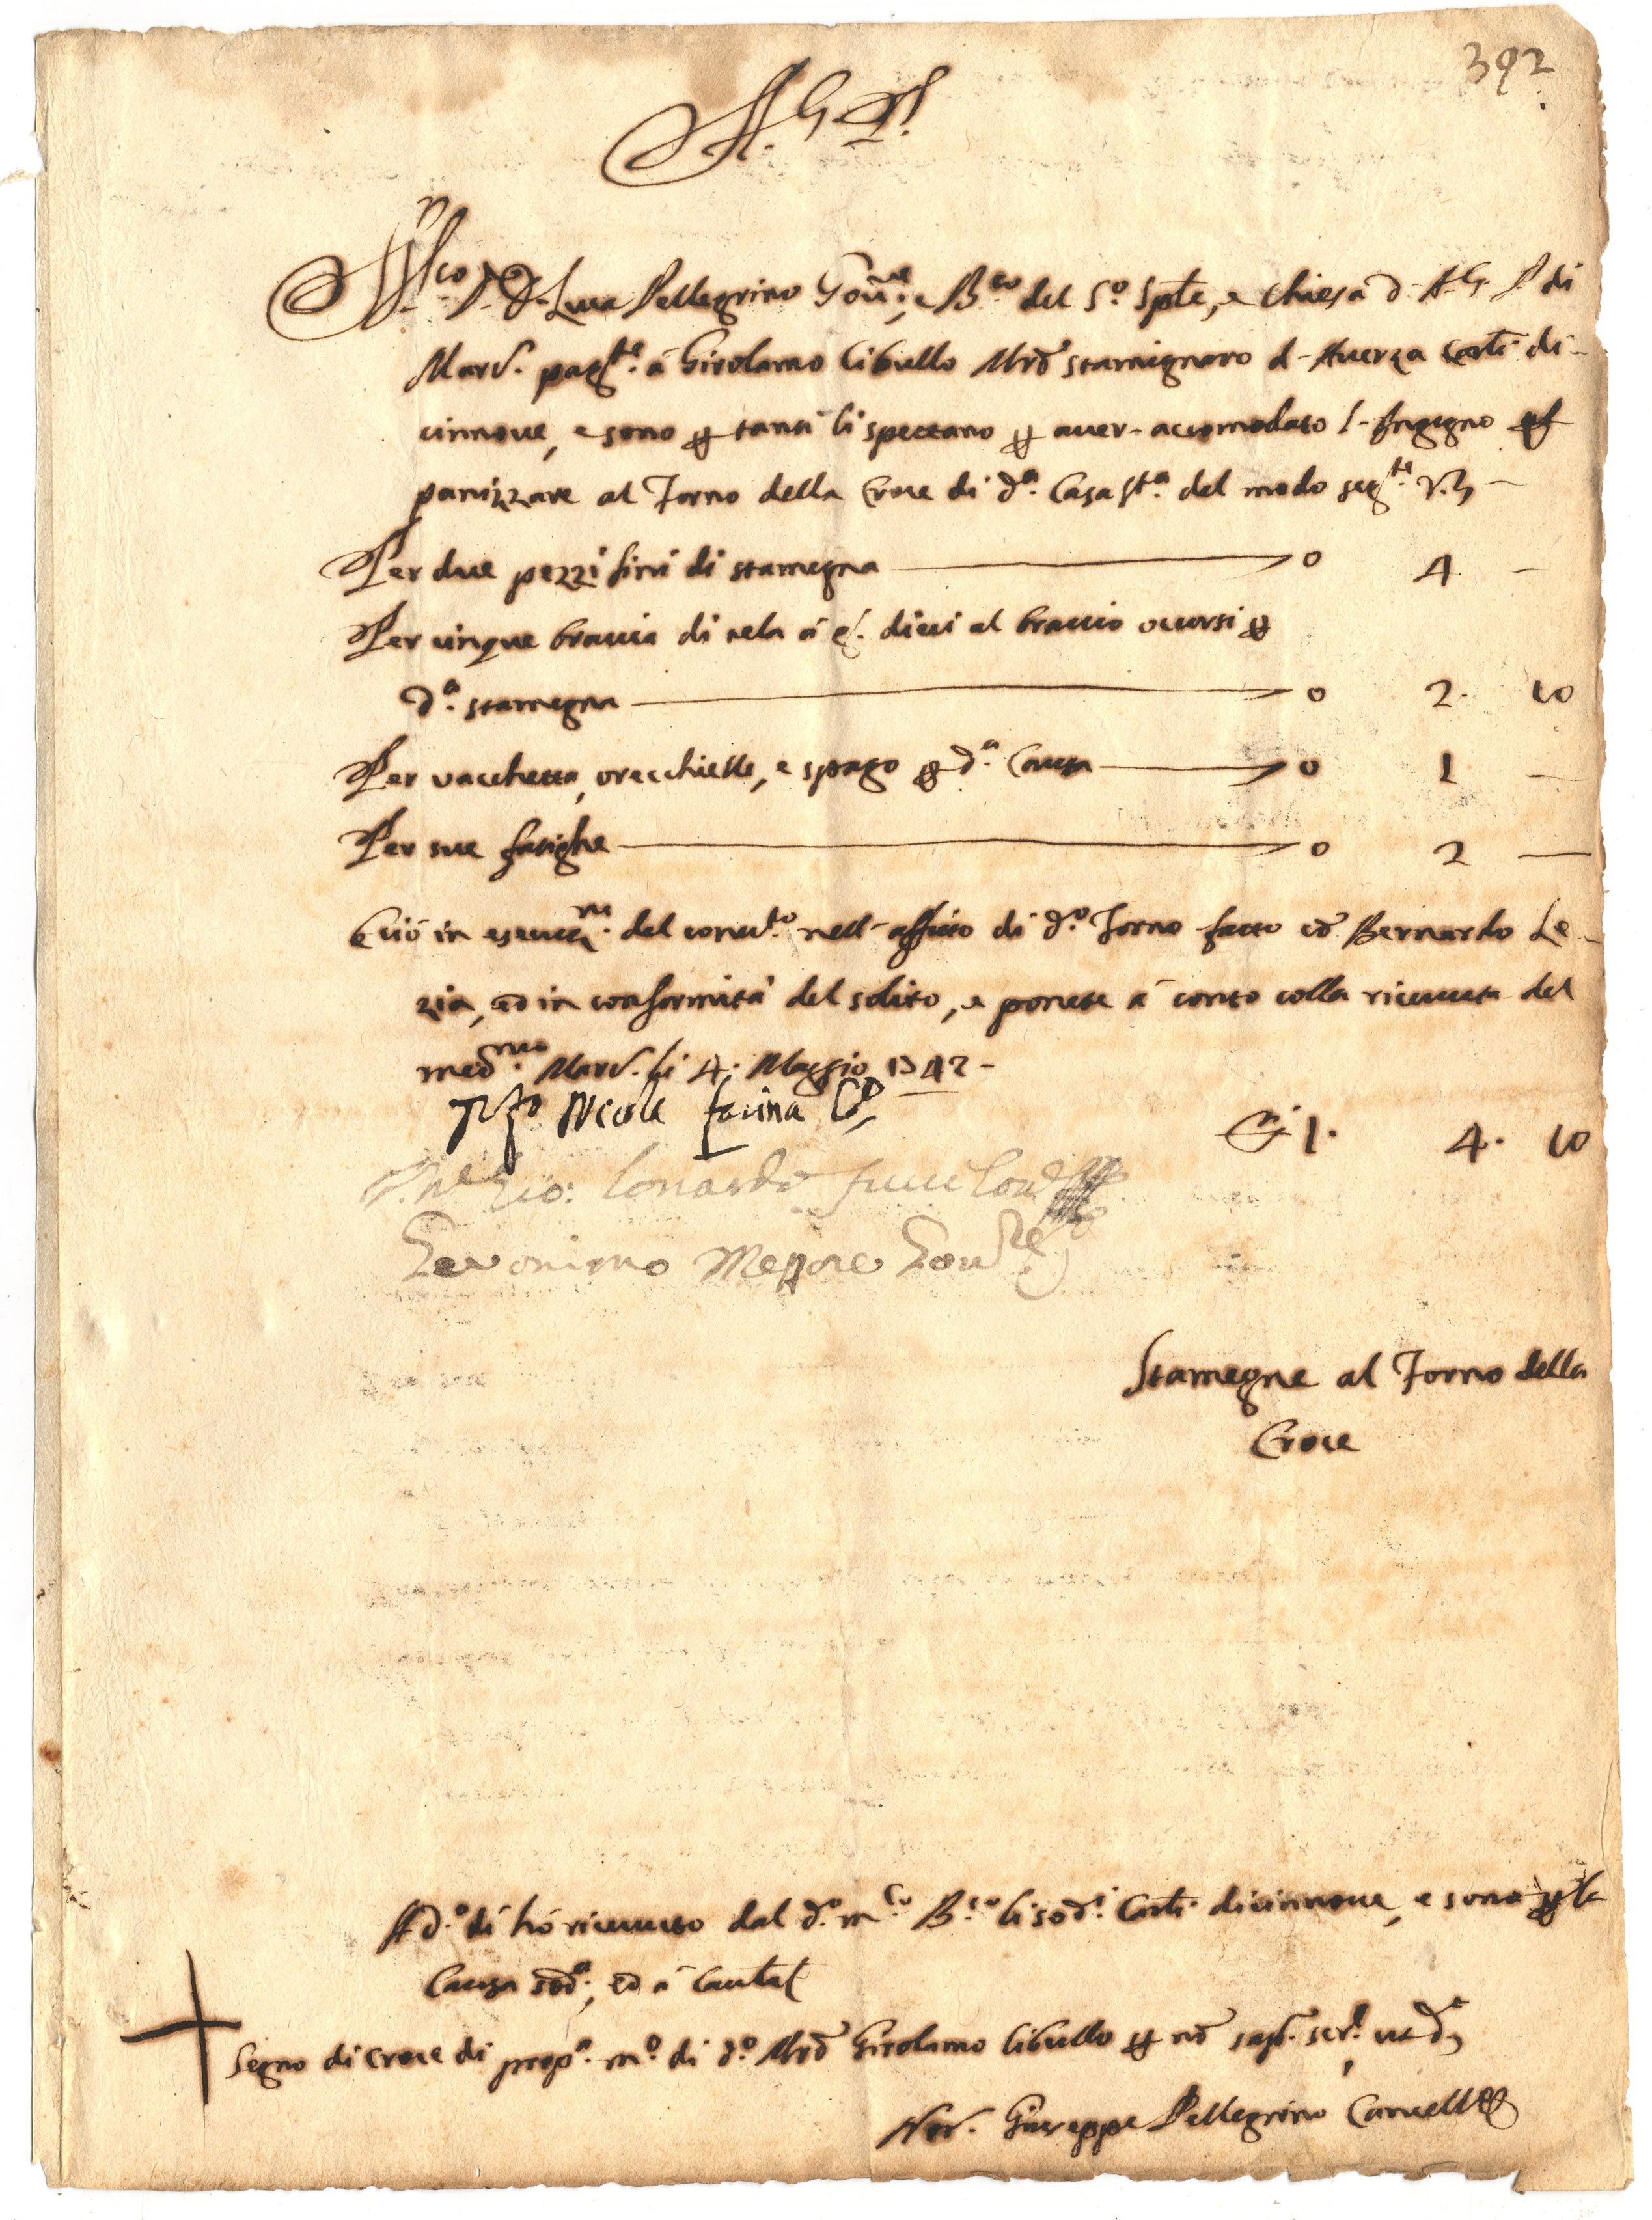 392
A. G. P.
M.co S. D. Luca Pellegrino Gou.re, e B.co del S.o Sple, e Chiesa d. A. G. P. di
Marc. pag.te à Girolamo Cibullo Mrõ stamignaro d'Auerza Carli di-
cinnove, e sono p tanti li spettano p auer accomodato l'Ingegno
panizzare al Forno della Croce di d.a Casa S.ta del modo seg.te V.z
Per due pezzi fini di stamegna 0 4 -
Per cinque braccia di tela à g.a dieci al braccio occorsi p
d.a stamegna 0 2. 10
Per vacchetta, orecchielle, e spago p d.a Causa 0 1 -
Per sue fatighe 0 2 -
E ciò in esecuz.m del conu.to nell'affitto di d.o Forno fatto cõ Bernardo Le-
zia, ed in conformità del solito, e ponete à conto colla riceuuta del
med.mo Marc. li 4. Maggio 1742 -
Nicola Farina
1. 4. 10
Gio: Lonardo
Geronimo Gou.re
Stamegne al Forno della
Croce
A d.o dì hò riceuuto dal d.o m.co B.co li sod.i Carli dicinnove, e sono p la
Causa sod.a, ed à Cautel
Segno di Croce di prop.a m.o di d.o Mrõ Girolamo Cibullo p nõ sap. scr. ut d
Not. Giuseppe Pellegrino Cancell